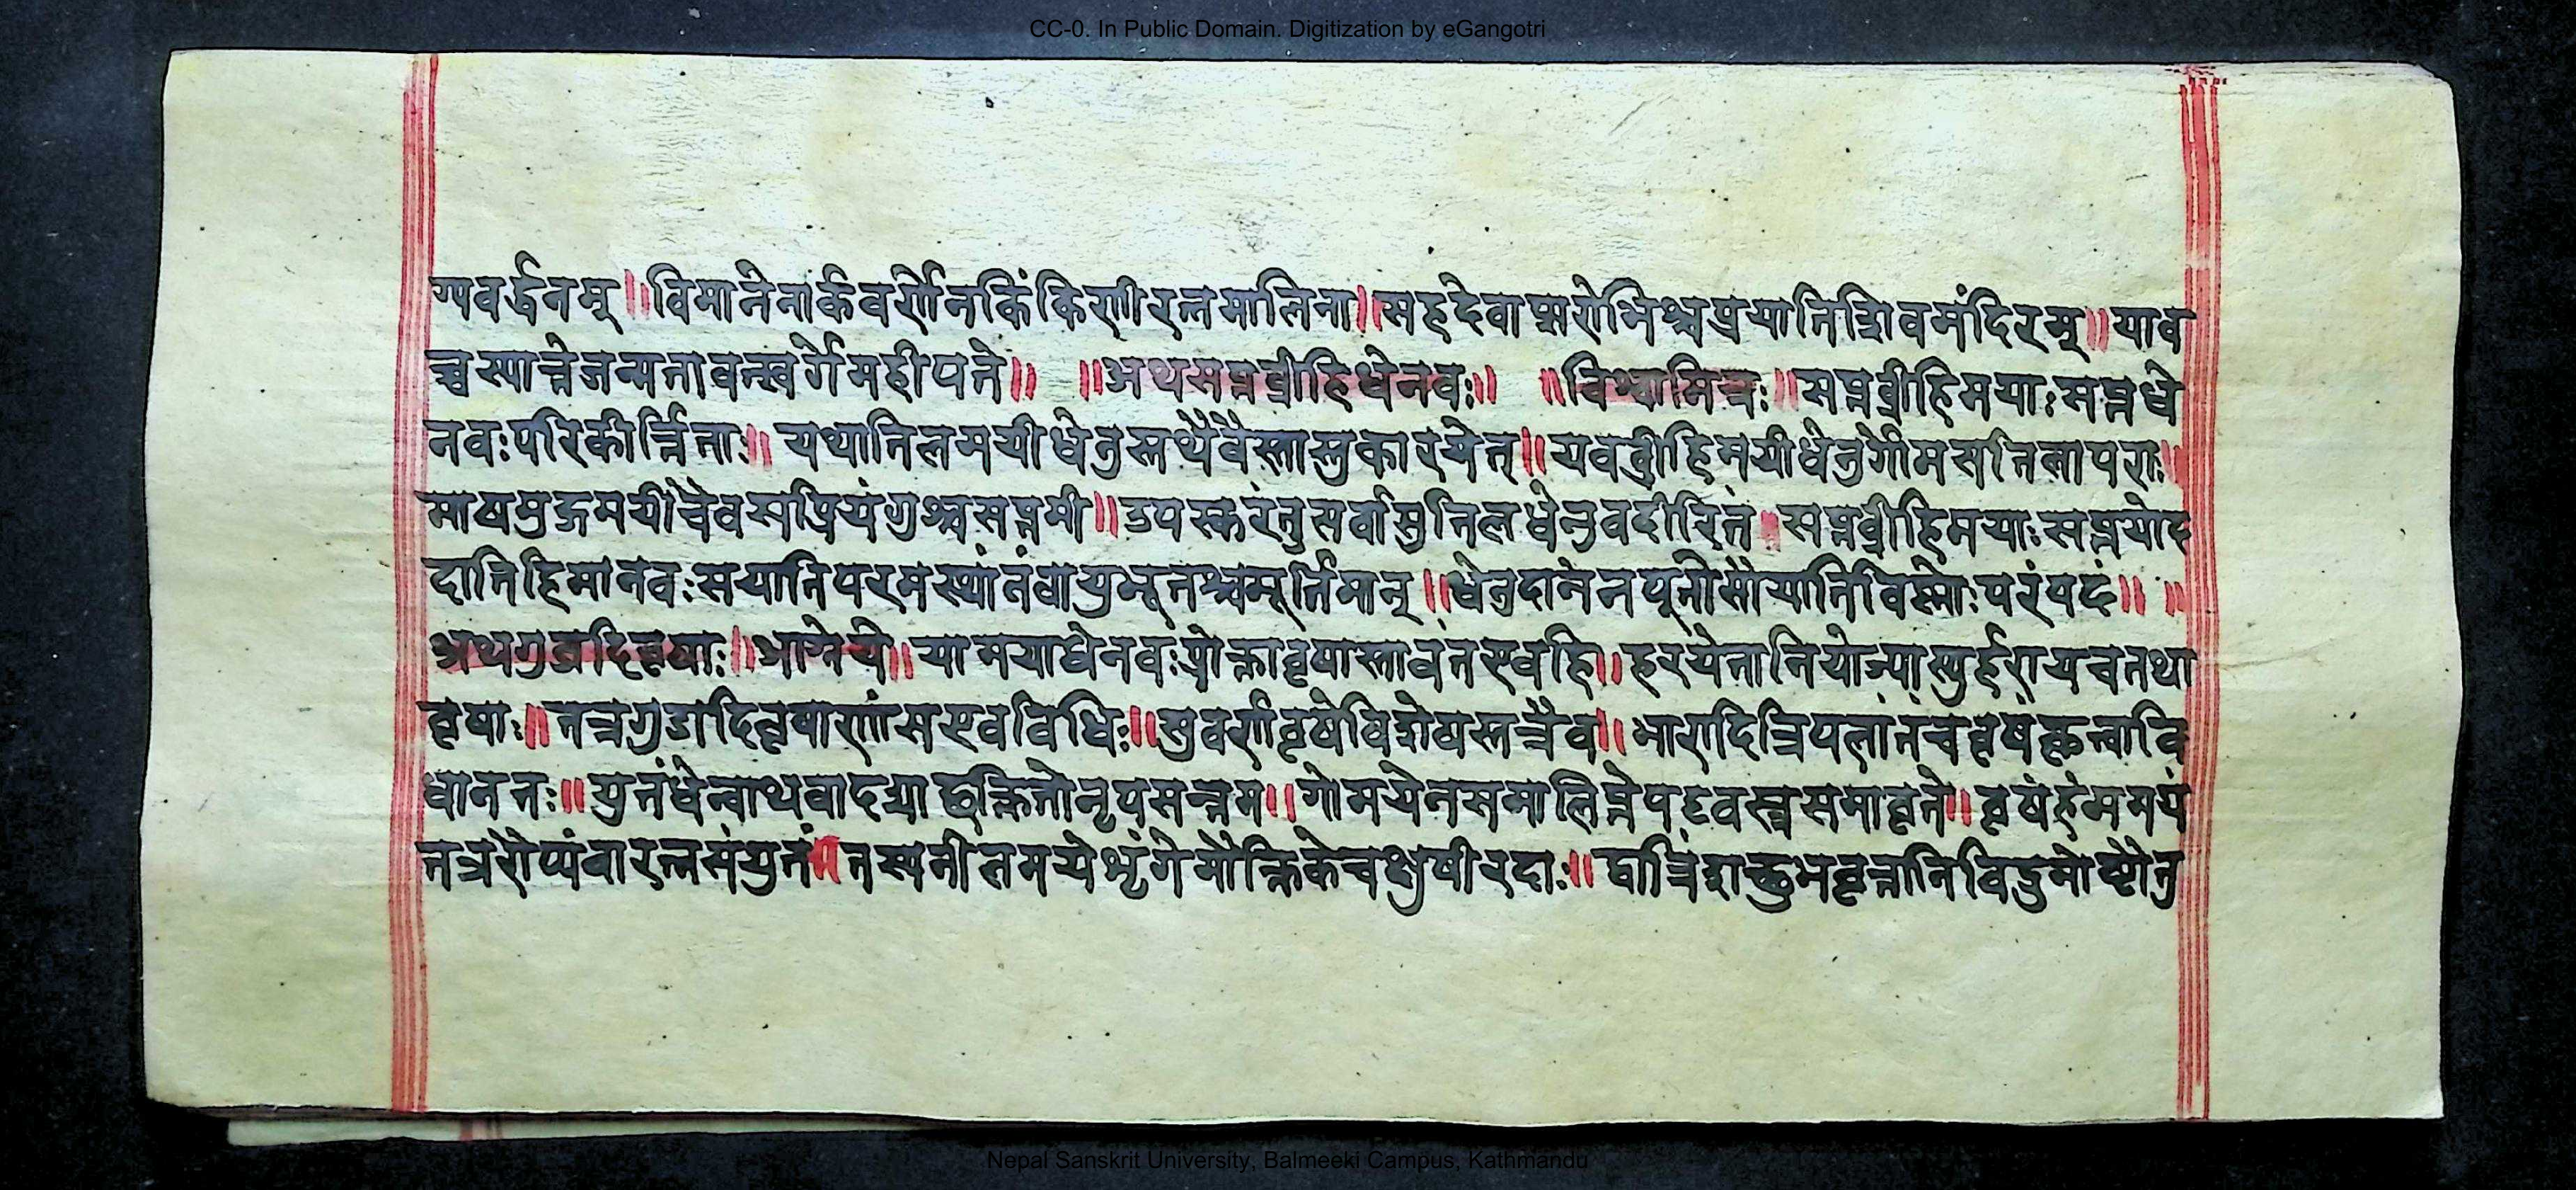 CC-0. In Public Domain. Digitization by eGangotri
ग्यवर्द्धनम्॥विमानेनार्कवर्णेनकिंकिणीरत्नमालिना॥सहदेवाप्सरोभिश्चप्रयातिशिवमंदिरम्॥याव
च्चस्यात्तेजन्मतावत्स्वर्गेमहीपते॥ ॥अथसप्तव्रीहिधेनवः॥ ॥विश्वामित्रः॥सप्तव्रीहिमयाःसप्तधे
नवःपरिकीर्त्तिताः॥ यथातिलमयीधेनुस्तथैवैस्तास्तुकारयेत्॥यवव्रीहिमयीधेनुर्गोमसतिलापराः॥
माषमुद्गमयीचैवसप्रियंगुश्चसप्तमी॥उपस्करंतुसर्वासुतिलधेनुवदीरितं॥सप्तव्रीहिमयाःसप्तयोह
दातिहिमानवःसयातिपरमस्थानंवायुभूतश्चमूर्तिमान्॥धेनुदानेनपूतोसौयातिविष्णोःपरंपदं॥ ॥
अथगुडादिवृषाः॥आग्नेये॥यामयाधेनवःप्रोक्तावृषास्तावंतएवहि॥हरयेतानियोज्यास्युर्हरायचतथा
वृषाः॥तत्रगुडादिवृषाणांसएवविधिः॥सुवर्णवृषेविशेषस्तत्रैव॥भारादित्रिपलांतंचवृषंकृत्वावि
धानतः॥युतंधेन्वाथवादद्याद्भुक्तितोनृपसत्तम॥गोमयेनसमालिप्तेपट्टवस्त्रसमावृते॥वृषंहेममयं
तत्ररौप्यंवारत्नसंयुतं॥तस्यनीलमयेशृंगेमौक्तिकेचक्षुषीरदाः॥ द्वात्रिंशच्छुभवृत्तानिविद्रुमोष्ठौतु
Nepal Sanskrit University, Balmeeki Campus, Kathmandu